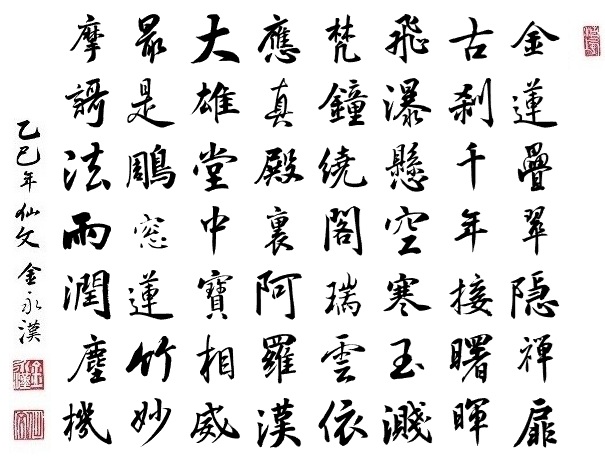 金蓮疊翠隱禪扉
古刹千年接曙暉
飛瀑懸空寒玉濺
梵鐘繞閣瑞雲依
應真殿裏阿羅漢
大雄堂中寶相威
最是鵰窓蓮竹妙
摩謌法雨潤塵機
乙巳年仙文金永漢